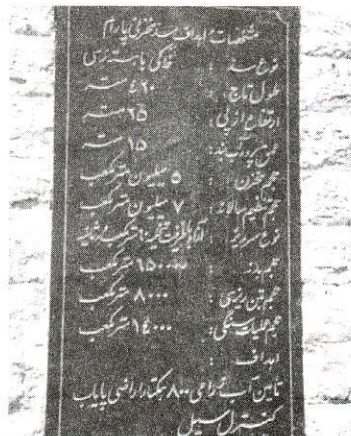 مشخصات و اهداف سد مخزنی پارام
نوع سد : خاکی با هسته رسی
طول تاج : ۴۲۰ متر
ارتفاع از پی : ۲۵ متر
عمق پرده آب بند : ۱۵ متر
حجم مخزن : ۵ میلیون مترمکعب
حجم تنظیم سالانه : ۷ میلیون مترمکعب
نوع سرریز : آزاد با ظرفیت تخلیه مترمکعب بر ثانیه
حجم بدنه : ۱۵۰۰۰۰ مترمکعب
حجم بتن ریزی : ۸۰۰۰ مترمکعب
حجم عملیات سنگی : ۱۴۰۰۰ مترمکعب
اهداف :
تامین آب زراعی ۸۰۰ هکتار اراضی پایاب
کنترل سیل